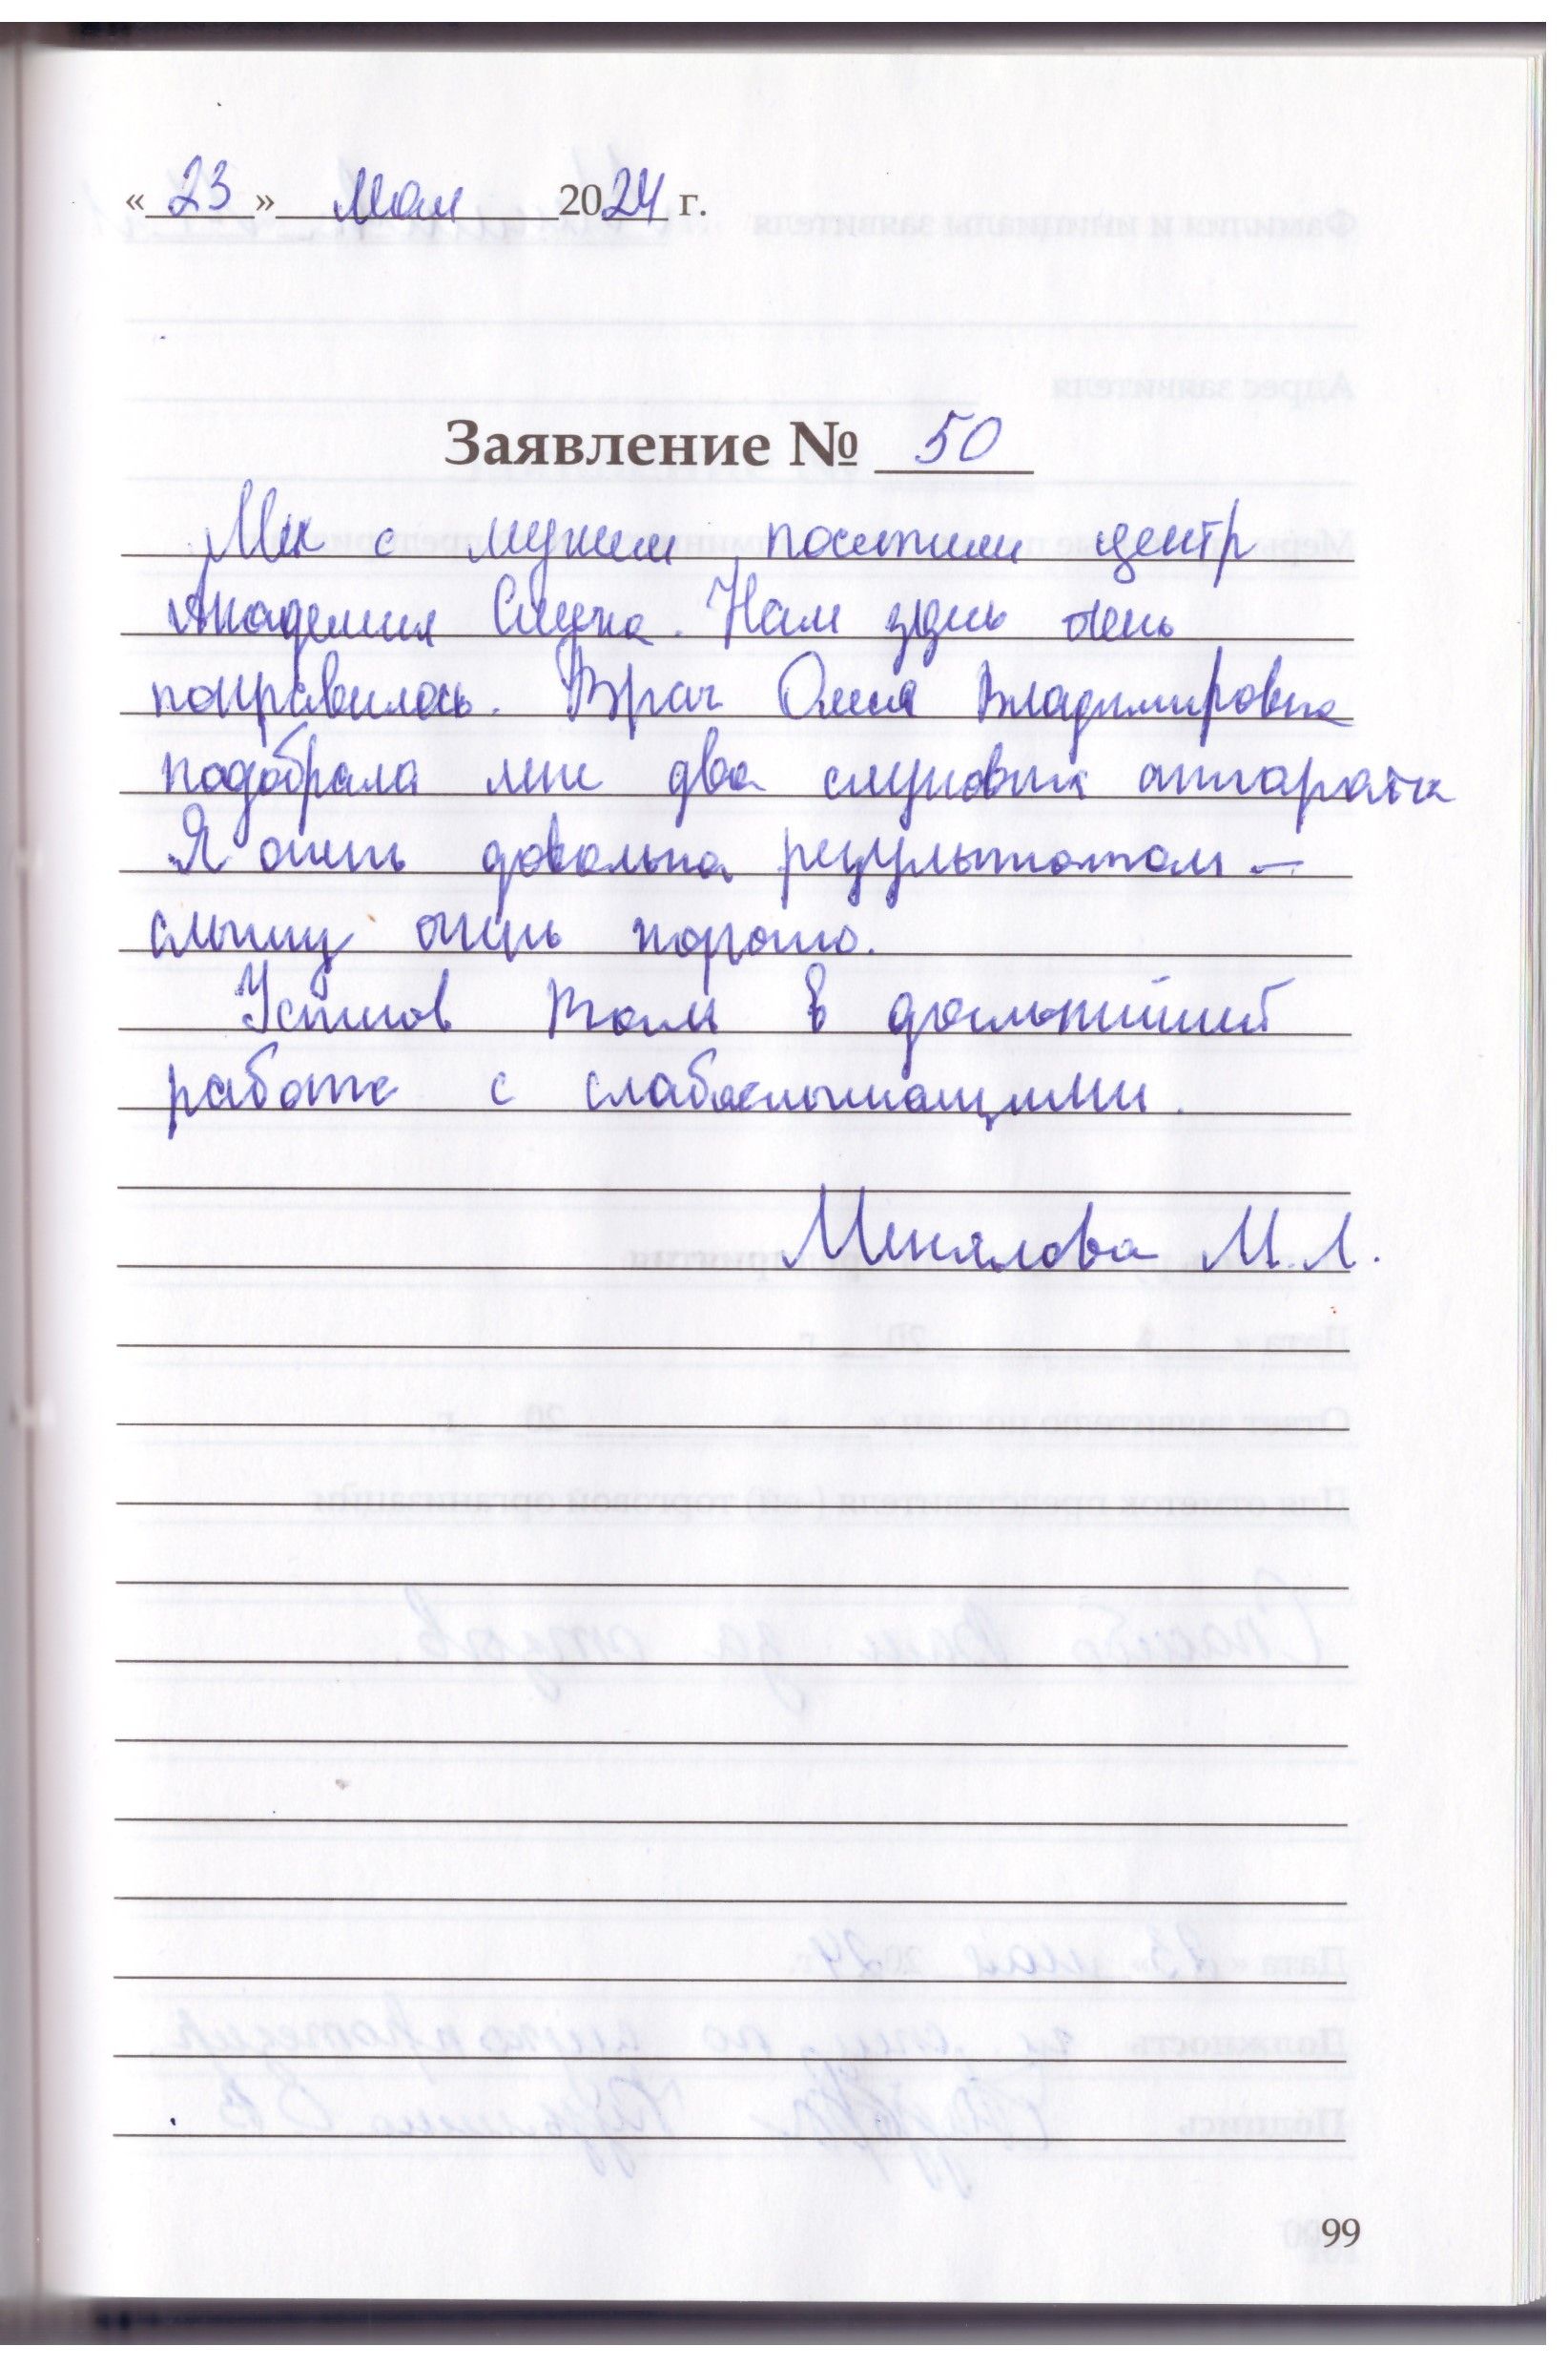 « 23 » Мая 2024 г.
Заявление № 50
Мы с мужем посетили центр
Академия Слуха. Нам здесь очень
понравилось. Врач Олеся Владимировна
подобрала мне два слуховых аппарата
Я очень довольна результатом –
слышу очень хорошо.
Успехов Вам в дальнейшей
работе с слабослышащими.
Менялова М.Л.
99